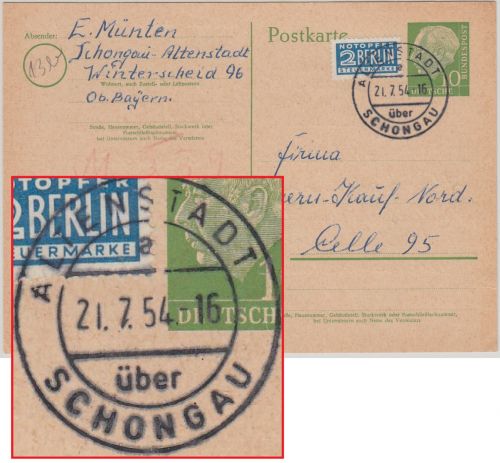 Absender:
E. Münten
Schongau-Altenstadt
Winterscheid 96
Wohnort, auch Zustell- oder Leitpostamt
Ob. Bayern.
Straße, Hausnummer, Gebäudeteil, Stockwerk oder
Postschließfachnummer,
bei Untermietern auch Name des Vermieters
13b
Postkarte
NOTOPFER
2 BERLIN
STEUERMARKE
ALTENSTADT
a
21.7.54.-16
über
SCHONGAU
10
DEUTSCHE
BUNDESPOST
Firma
Kauf Nord.
Celle 95
Straße, Hausnummer, Gebäudeteil, Stockwerk oder Postschließfachnummer,
bei Untermietern auch Name des Vermieters
NOTOPFER
2 BERLIN
STEUERMARKE
ALTENSTADT
a
21.7.54.-16
über
SCHONGAU
1
DEUTSCHE